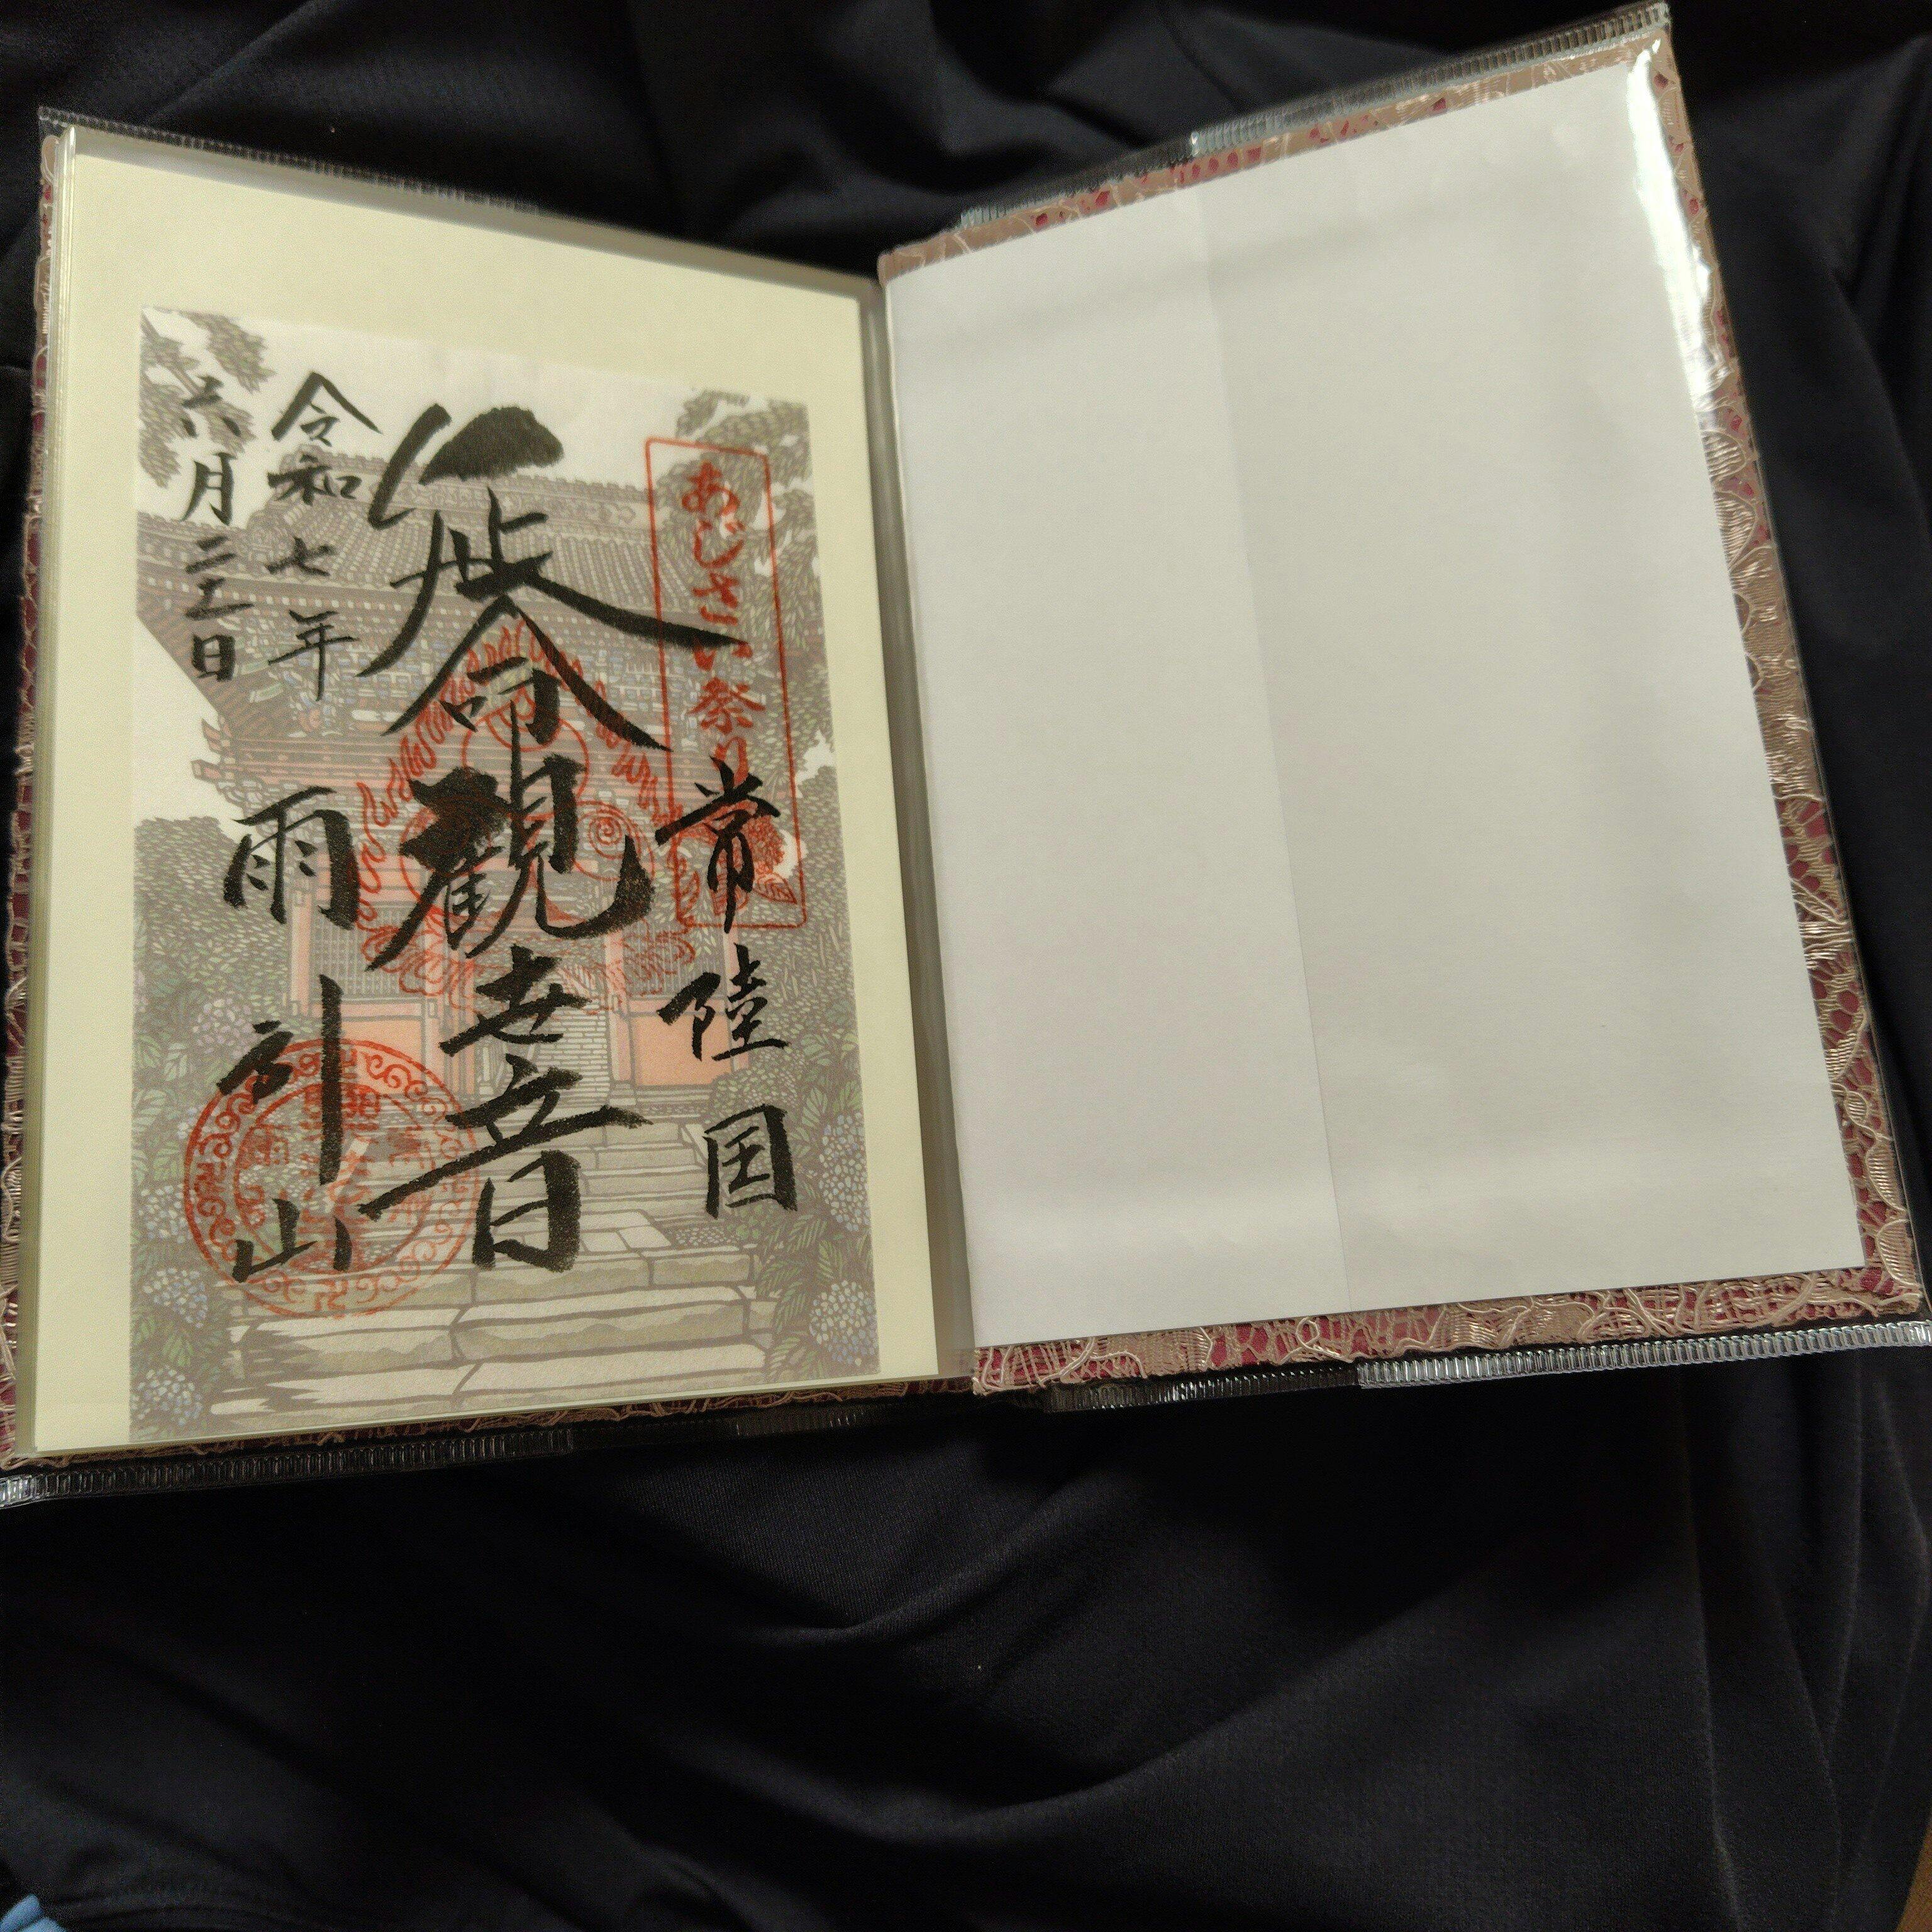 あじさい祭り
常陸国
延命観世音
令和七年
六月二十一日
雨引山